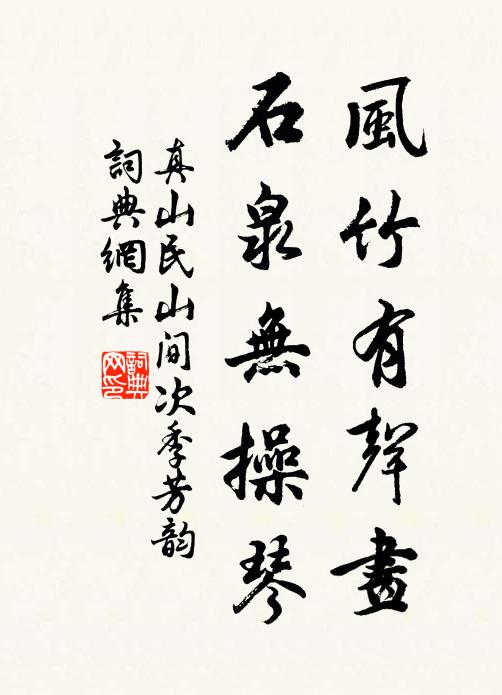 風竹有聲畫
石泉無操琴
真山民山間次季芳韵
詞典網集
詞典网印